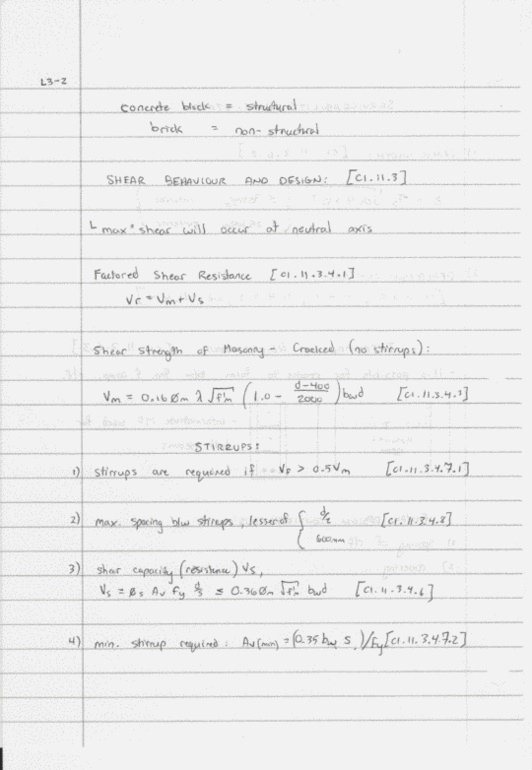 L3-2
concrete block = structural
brick = non-structural
SHEAR BEHAVIOUR AND DESIGN: [Cl.11.3]
└ max^m shear will occur at neutral axis
Factored Shear Resistance [Cl.11.3.4.1]
Vr = Vm + Vs
Shear Strength of Masonry - Cracked (no stirrups):
Vm = 0.16 Øm λ √f'm (1.0 - (d-400)/2000) bwd [Cl.11.3.4.3]
STIRRUPS:
1) stirrups are required if Vf > 0.5Vm [Cl.11.3.4.7.1]
2) max. spacing b/w stirrups, lesser of { d/2 [Cl.11.3.4.8]
600mm
3) shear capacity (resistance) Vs,
Vs = Øs Av Fy d/s ≤ 0.36Øm √f'm bwd [Cl.11.3.4.6]
4) min. stirrup required: Av(min) = (0.35 bw s)/Fy [Cl.11.3.4.7.2]